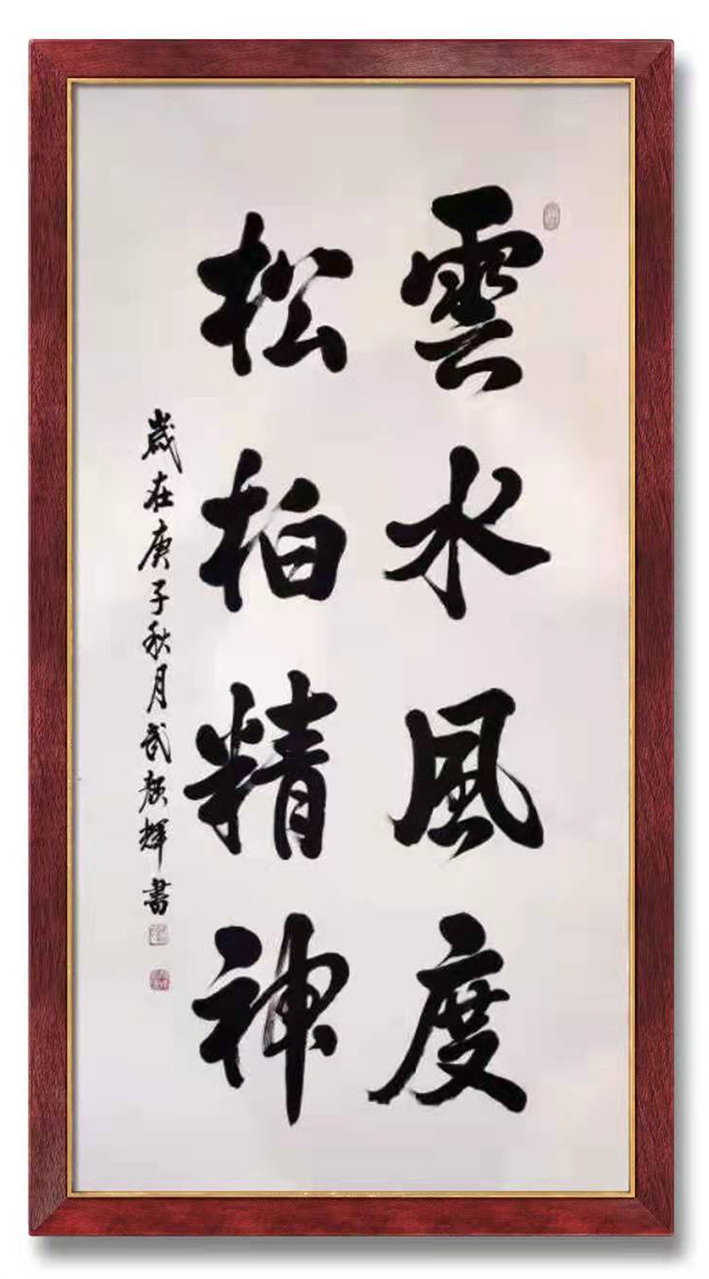 雲水風度
松柏精神
歲在庚子秋月武顏輝書